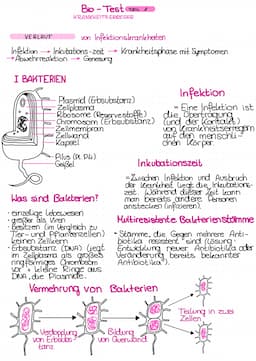 Bio-Test
KRANKHEITSERREGER
VERLAUF von Infektionskrankheiten
Infektion → Inkubations-zeit → Krankheitsphase mit Symptomen
→ Abwehrreaktion → Genesung
I BAKTERIEN
Plasmid (Erbsubstanz)
Zellplasma
Ribosome (Reservestoffe)
Chromosom (Erbsubstanz)
Zellmembran
Zellwand
Kapsel
Pilus (Pl. Pili)
Geißel
Infektion
= Eine Infektion ist
die Übertragung
(und der Kontakt)
von Krankheitserregern
auf den menschli-
chen Körper
Inkubationszeit
= Zwischen Infektion und Ausbruch
der Krankheit liegt die Inkubations-
zeit. Während dieser Zeit kann
man bereits andere Personen
anstecken (infizieren).
Was sind Bakterien?
• einzellige Lebewesen
• größer als Viren
• besitzen (im Vergleich zu
Tier- und Pflanzenzellen)
keinen Zellkern
• Erbsubstanz (DNA) liegt
im Zellplasma als großes
ringförmiges Chromosom
vor + kleine Ringe aus
DNA, die Plasmide.
Multiresistente Bakterienstämme
= Stämme, die gegen mehrere Anti-
biotika resistent sind (Lösung:
Entwicklung neuer Antibiotika oder
Veränderung bereits bekannter
Antibiotika).
Vermehrung von Bakterien
Verdopplung
von Erbsubs-
tanz
Bildung
von Querwand
Teilung in zwei
Zellen